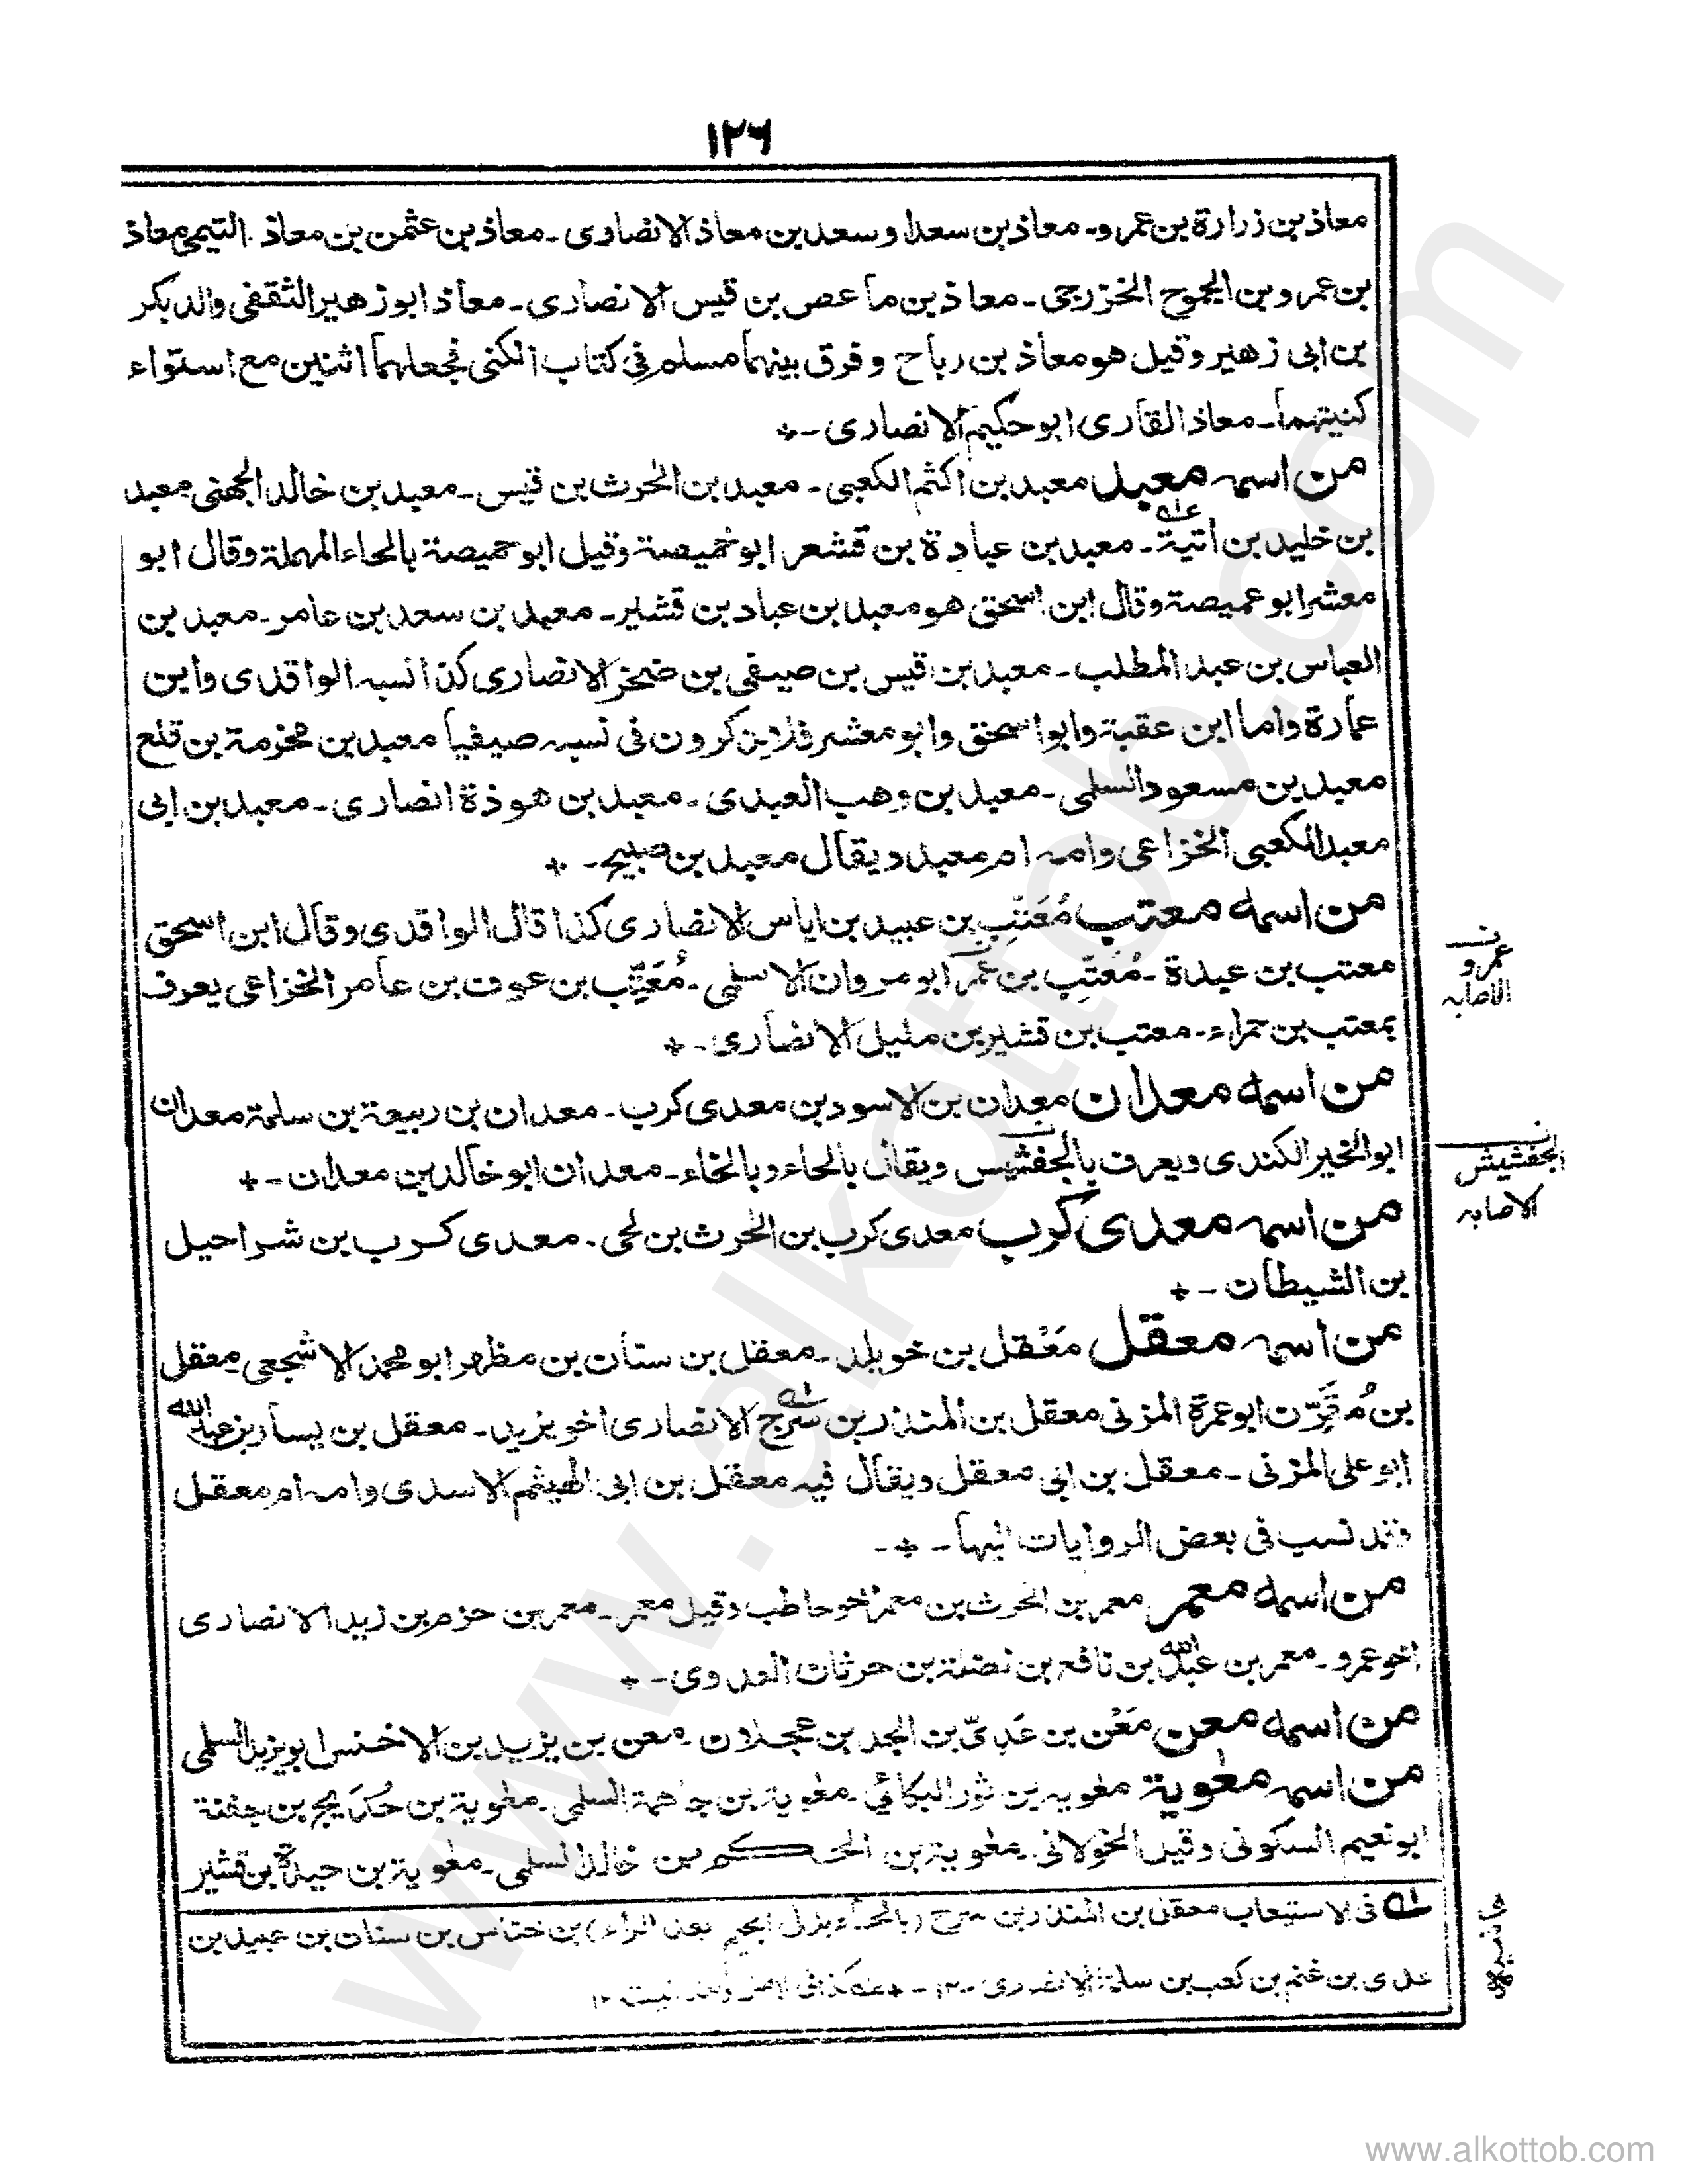 ١٢٦
معاذ بن زرارة بن عمرو ـ معاذ بن سعد او سعد بن معاذ الانصاری ـ معاذ بن عثمن بن معاذ التیمی معاذ
بن عمرو بن الجموح الخزرجی ـ معاذ بن ماعص بن قیس الانصاری ـ معاذ ابو زهیر الثقفی والد بکر
بن ابی زهیر وقیل هو معاذ بن رباح وفرق بینهما مسلم فی کتاب الکنی فجعلهما اثنین مع استواء
کنیتهما ـ معاذ القاری ابو حکیم الانصاری ـ +
من اسمه معبد معبد بن اکثم الکعبی ـ معبد بن الحرث بن قیس ـ معبد بن خالد الجهنی معبد
بن خلید بن اتیة ـ معبد بن عبادة بن قشعر ابو خمیصة وقیل ابو حمیصة بالحاء المهملة وقال ابو
معشر ابو عمیصة وقال ابن اسحق هو معبد بن عباد بن قشیر ـ معبد بن سعد بن عامر ـ معبد بن
العباس بن عبد المطلب ـ معبد بن قیس بن صیفی بن ضخر الانصاری کذا نسبه الواقدی وابن
عمارة واما ابن عقبة وابو اسحق وابو معشر فلا یذکرون فی نسبه صیفیا معبد بن مخزمة بن قلع
معبد بن مسعود السلمی ـ معبد بن وهب العبدی ـ معبد بن هوذة انصاری ـ معبد بن ابی
معبد الکعبی الخزاعی وامه ام معبد ویقال معبد بن صبیح ـ +
من اسمه معتب مُعَتِّب بن عبید بن ایاس الانصاری کذا قال الواقدی وقال ابن اسحق
معتب بن عبدة ـ مُعَتِّب بن عمر ابو مروان الاسلمی ـ مُعَتِّب بن عوف بن عامر الخزاعی یعرف
بمعتب بن حمراء ـ معتب بن قشیر بن ملیل الانصاری ـ +
من اسمه معدان معدان بن الاسود بن معدی کرب ـ معدان بن ربیعة بن سلمة معدان
ابو الخیر الکندی ویعرف بالجفشیس ویقال بالحاء وبالخاء ـ معدان ابو خالد بن معدان ـ +
من اسمه معدی کرب معدی کرب بن الحرث بن لحی ـ معدی کرب بن شراحیل
بن الشیطان ـ +
من اسمه معقل مَعْقل بن خویلد ـ معقل بن سنان بن مظهر ابو محمد الاشجعی ـ معقل
بن مُقَرِّن ابو عمرة المزنی معقل بن المنذر بن سرج الانصاری اخو یزید ـ معقل بن یسار بن عبد الله
ابو علی المزنی ـ معقل بن ابی معقل ویقال فیه معقل بن ابی الهیثم الاسدی وامه ام معقل
فقد نسب فی بعض الروایات الیها ـ + ـ
من اسمه معمر معمر بن الحرث بن معمر اخو حاطب وقیل معمر ـ معمر بن حزم بن زید الانصاری
اخو عمرو ـ معمر بن عبد الله بن نافع بن نضلة بن حرثان العدوی ـ +
من اسمه معن مَعْن بن عَدِیّ بن الجد بن عجلان ـ معن بن یزید بن الاخنس ابو یزید السلمی
من اسمه معٰویة معٰویه بن ثور البکائی ـ معٰویة بن جاهمة السلمی ـ معٰویة بن حُدَیج بن جفنة
ابو نعیم السکونی وقیل الخولانی ـ معٰویة بن الحکم بن خالد السلمی ـ معٰویة بن حیدة بن قشیر
عمرو
الاصابه
الجفشیش
الاصابه
حاشیه
فی الاستیعاب معقل بن المنذر بن سرح (بالحاء بدل الجیم بعد الراء) بن خناس بن سنان بن عبید بن
عدی بن غنم بن کعب بن سلمة الانصاری ـ ۱۲ ـ + هکذا فی الاصل
www.alkottob.com
www.alkottob.com